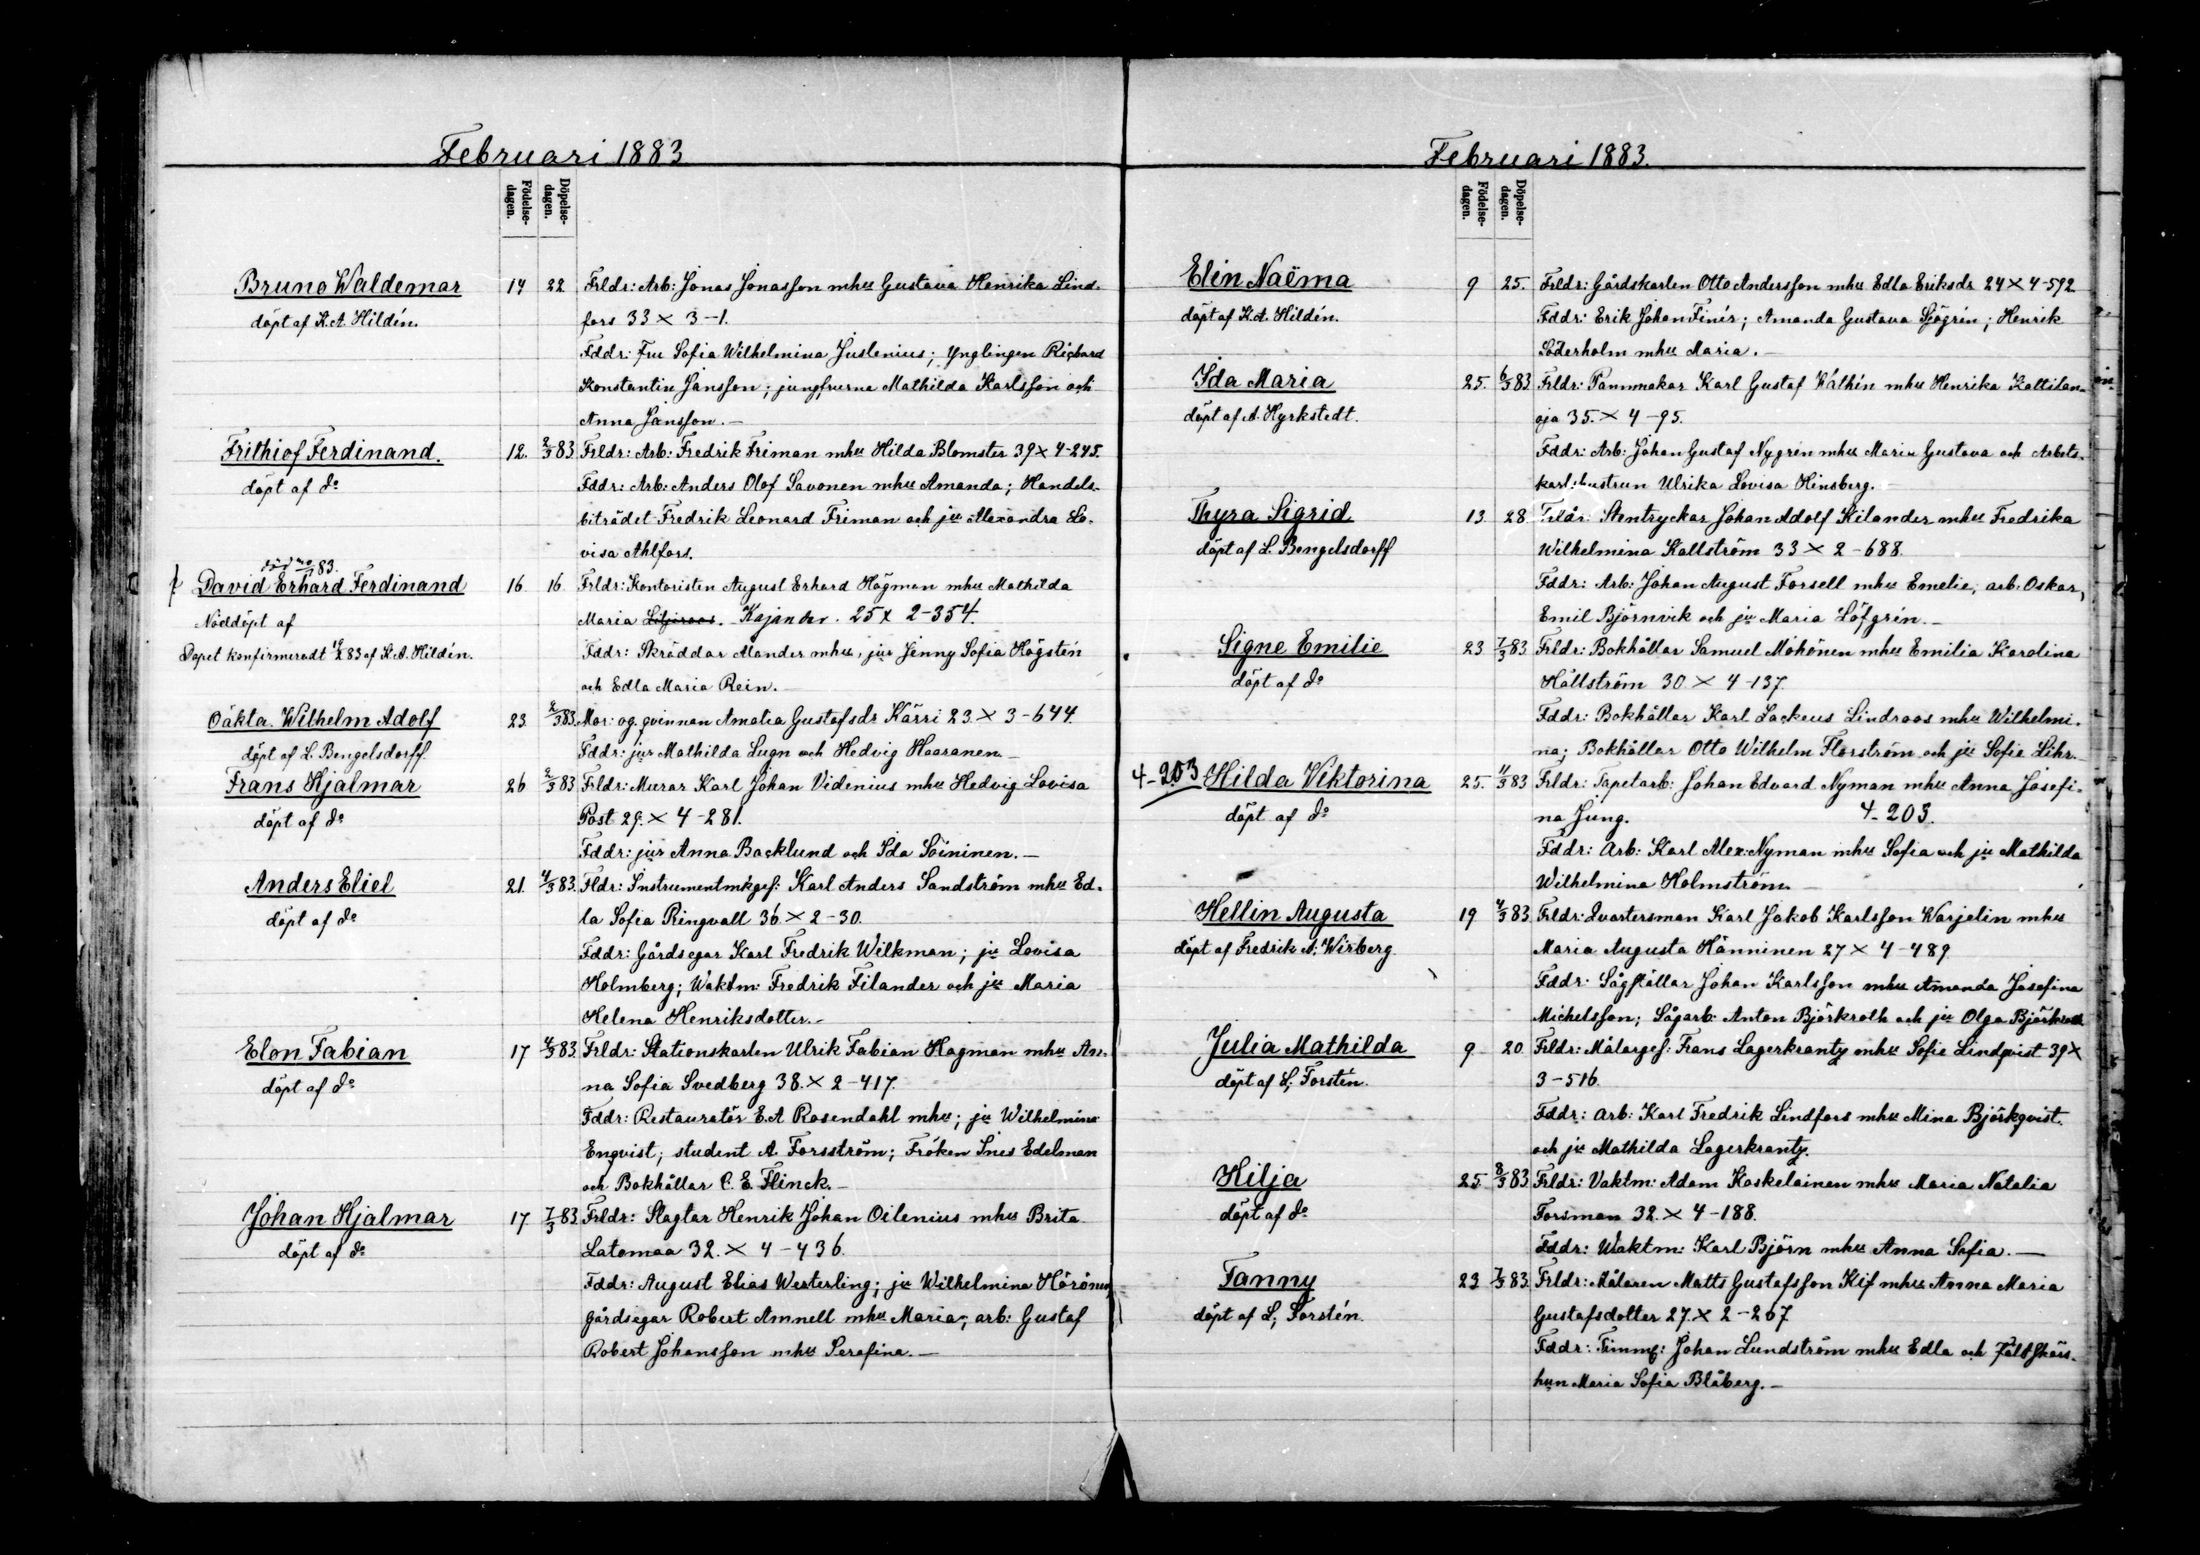 Februari 1883
Födelse-
dagen.
Döpelse-
dagen.
Bruno Waldemar 14 22 Frldr: Arb: Jonas Jonasson mhu Gustava Henrika Lind-
döpt af K.A. Hildén. fors 33 × 3-1.
Fddr: Fru Sofia Wilhelmina Juslenius; Ynglingen Richard
Konstantin Jansson; jungfrurna Mathilda Karlsson och
Anna Jansson.-
Frithiof Ferdinand. 12. 2/3 83. Frldr: Arb: Fredrik Friman mhu Hilda Blomster 39 × 4-245.
döpt af do Fddr: Arb: Anders Olof Savonen mhu Amanda; Handels-
biträdet Fredrik Leonard Friman och ju Alexandra Lo-
visa Ahlfors.
83.
David Erhard Ferdinand 16 16 Frldr: Kontoristen August Erhard Hagman mhu Mathilda
Nöddöpt af Maria Liljeroos. Kajander. 25 × 2-354.
Dopet konfirmeradt 83 af K.A. Hildén. Fddr: Skräddar Alander mhu, jur Jenny Sofia Högstén
och Edla Maria Rein.-
Oäkta. Wilhelm Adolf 23. 2/3 83. Mor: og. qvinnan Amalia Gustafsdr Kärri 23. × 3-644.
döpt af L. Bengelsdorff. Fddr: jur Mathilda Lugn och Hedvig Haaranen.-
Frans Hjalmar 26 2/3 83 Frldr: Murar Karl Johan Videnius mhu Hedvig Lovisa
döpt af do Post 29. × 4-281.
Fddr: jur Anna Backlund och Ida Soininen.-
Anders Eliel 21. 4/3 83. Fldr: Instrumentmkgef: Karl Anders Sandström mhu Ed-
döpt af do la Sofia Ringvall 36 × 2-30.
Fddr: Gårdsegar Karl Fredrik Wilkman; ju Lovisa
Holmberg; Waktm: Fredrik Filander och ju Maria
Helena Henriksdotter.-
Elon Fabian 17 4/3 83. Frldr: Stationskarlen Ulrik Fabian Hagman mhu An-
döpt af do na Sofia Svedberg 38. × 2-417.
Fddr: Restauratör E.A Rosendahl mhu; ju Wilhelmina
Enqvist; student A. Forsström; Fröken Ines Edelman
och Bokhållar C. E. Flinck.-
Johan Hjalmar 17 7/3 83. Frldr: Slagtar Henrik Johan Oilenius mhu Brita
döpt af do Latomaa 32. × 4-436.
Fddr: August Elias Westerling; ju Wilhelmina
gårdsegar Robert Amnell mhu Maria; arb: Gustaf
Robert Johansson mhu Serafina.-
Februari 1883.
Födelse-
dagen.
Döpelse-
dagen.
Elin Naëma 9 25. Frldr: Gårdskarlen Otto Andersson mhu Edla Eriksdr 24 × 4-592
döpt af K.A. Hildén. Fddr: Erik Johan Finér; Amanda Gustava Sjögrén; Henrik
Söderholm mhu Maria.-
Ida Maria 25. 6/3 83. Frldr: Pannmakar Karl Gustaf Wallin mhu Henrika Kattilan-
döpt af A. Hyrkstedt. oja 35. × 4-95.
Fddr: Arb: Johan Gustaf Nygrén mhu Maria Gustava och Arbets-
karlshustrun Ulrika Lovisa Hinsberg.-
Thyra Sigrid 13. 28 Frldr: Stentryckar Johan Adolf Kilander mhu Fredrika
döpt af L. Bengelsdorff Wilhelmina Kallström 33 × 2-688.
Fddr: Arb: Johan August Forsell mhu Emelie, arb: Oskar
Emil Björnvik och ju Maria Löfgrén.-
Signe Emilie 23 7/3 83 Frldr: Bokhållar Samuel Möhönen mhu Emilia Karolina
döpt af do Hällström 30 × 4-137.
Fddr: Bokhållar Karl Zackeus Lindroos mhu Wilhelmi-
na; Bokhållar Otto Wilhelm Florström och ju Sofie Lihr.
4-203 Hilda Viktorina 25. 11/3 83 Frldr: Tapetarb: Johan Edvard Nyman mhu Anna Josefi-
döpt af do na Jung. 4-203.
Fddr: Arb: Karl Alex: Nyman mhu Sofia och ju Mathilda
Wilhelmina Holmström.-
Hellin Augusta 19 4/3 83. Frldr: Qvartersman Karl Jakob Karlsson Warjelin mhu
döpt af Fredrik A. Wirberg. Maria Augusta Hänninen 27 × 4-489.
Fddr: Sågställar Johan Karlsson mhu Amanda Josefina
Michelsson; Sågarb: Anton Björkroth och ju Olga Björkroth
Julia Mathilda 9 20 Frldr: Målargef: Frans Lagerkrantz mhu Sofie Lindqvist 39 ×
döpt af L; Forstén. 3-516.
Fddr: Arb: Karl Fredrik Lindfors mhu Mina Björkqvist.
och ju Mathilda Lagerkrantz.
Hilja 25 8/3 83 Frldr: Vaktm: Adam Koskelainen mhu Maria Natalia
döpt af do Forsman 32. × 4-188.
Fddr: Waktm: Karl Björn mhu Anna Sofia.-
Fanny 23 7/3 83. Frldr: Målaren Matts Gustafsson Kif mhu Anna Maria
döpt af L; Forstén. Gustafsdotter 27. × 2-267
Fddr: Timm: Johan Lundström mhu Edla och Fältskärs-
hun Maria Sofia Blåberg.-